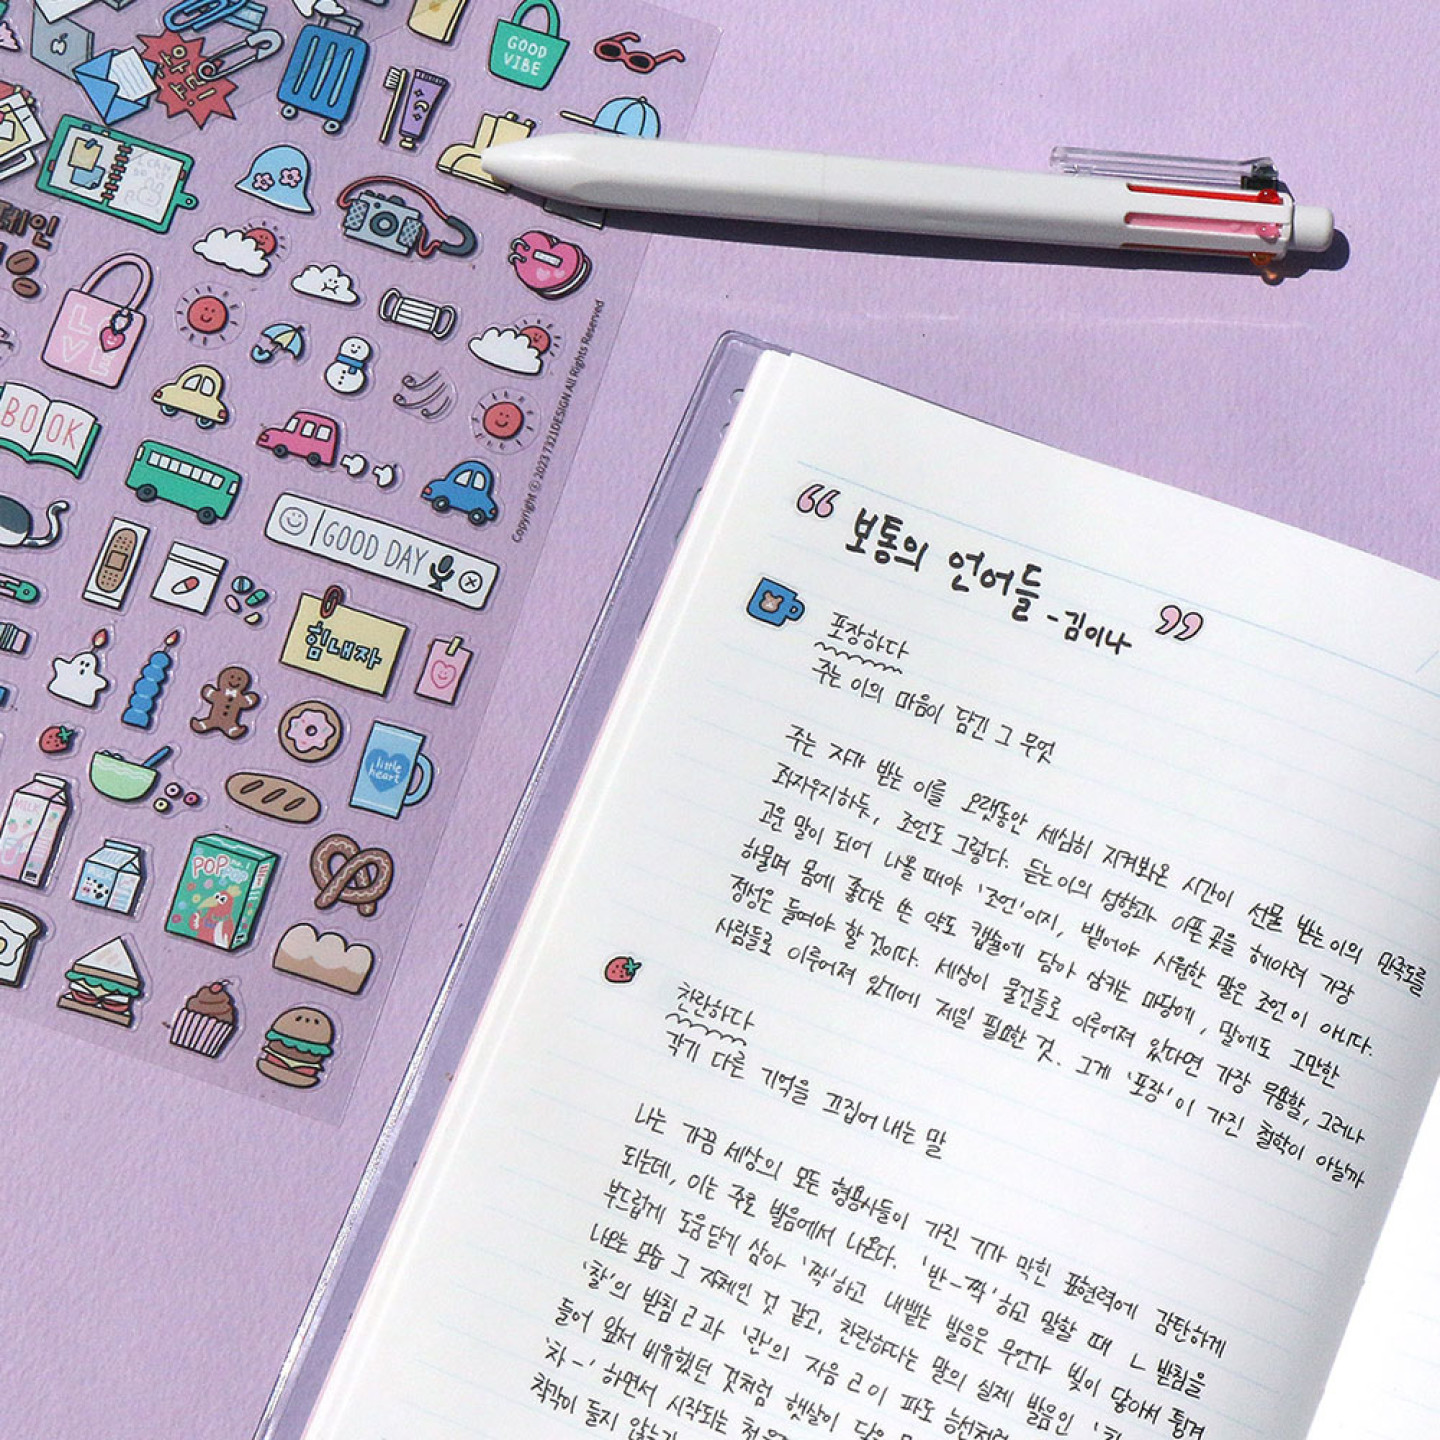 GOOD
VIBE
LO
VE
BOOK
GOOD DAY
힘내자
little
heart
MILK
MILK
POP
Copyright ⓒ 2023 7321DESIGN All Rights Reserved
“ 보통의 언어들 -김이나 ”
포장하다
주는 이의 마음이 담긴 그 무엇
주는 자가 받는 이를 오랫동안 세심히 지켜봐온 시간이 선물 받는 이의 만족도를
좌지우지하듯, 조언도 그렇다. 듣는 이의 성향과 아픈 곳을 헤아려 가장
고운 말이 되어 나올 때야 '조언'이지, 뱉어야 시원한 말은 조언이 아니다.
하물며 몸에 좋다는 쓴 약도 캡슐에 담아 삼키는 마당에, 말에도 그만한
정성은 들여야 할 것이다. 세상이 물건들로 이루어져 있다면 가장 무용할, 그러나
사람들로 이루어져 있기에 제일 필요한 것. 그게 '포장'이 가진 철학이 아닐까
찬란하다
각기 다른 기억을 끄집어 내는 말
나는 가끔 세상의 모든 형용사들이 가진 기가 막힌 표현력에 감탄하게
되는데, 이는 주로 발음에서 나온다. '반-짝'하고 말할 때 ㄴ 받침을
부드럽게 도움닫기 삼아 '짝'하고 내뱉는 발음은 무언가 빛이 닿아서 튕겨
나오는 모습 그 자체인 것 같고, 찬란하다는 말의 실제 발음인
'찰'의 받침 ㄹ과 '란'의 자음 ㄹ이 파도 능선처럼
들어 앞서 비유했던 것처럼 햇살이 닿은
'차-' 하면서 시작되는 첫
착각이 들지 않는가